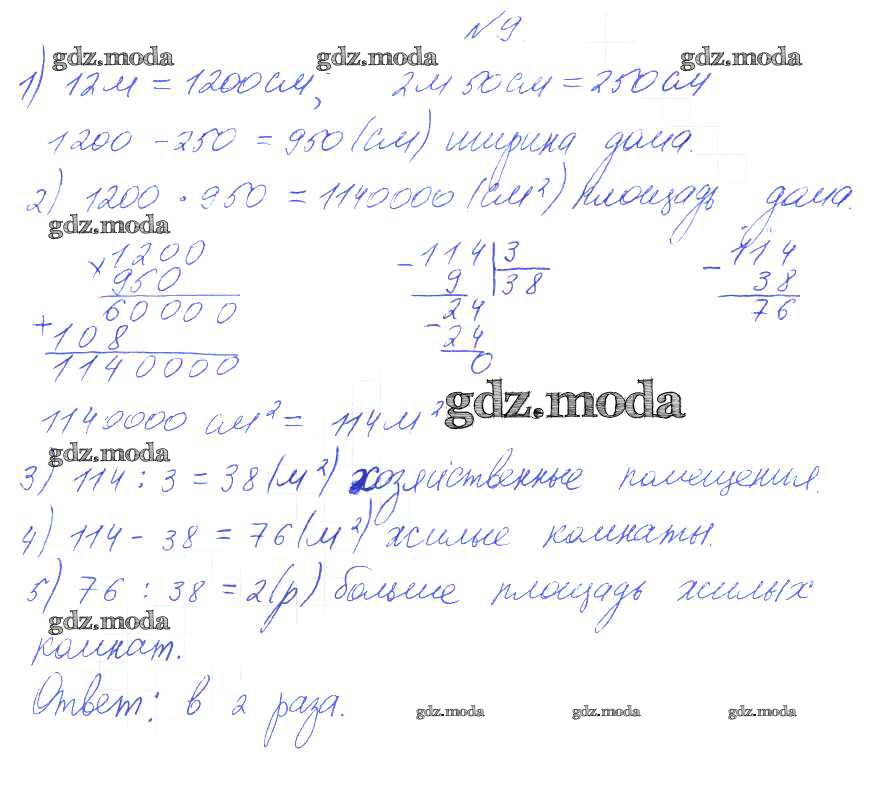 №9.
gdz.moda gdz.moda gdz.moda
1) 12м = 1200см; 2м 50см = 250см
1200 - 250 = 950 (см) ширина дома.
2) 1200 · 950 = 1140000 (см²) площадь дома.
gdz.moda
× 1200
950
60000
+ 108
1140000
- 114 | 3
9 38
- 24
24
0
- 114
38
76
1140000 см² = 114м² gdz.moda
gdz.moda
3) 114 : 3 = 38 (м²) хозяйственные помещения.
4) 114 - 38 = 76 (м²) жилые комнаты.
5) 76 : 38 = 2 (р) больше площадь жилых
gdz.moda
комнат.
Ответ: в 2 раза.
gdz.moda gdz.moda gdz.moda